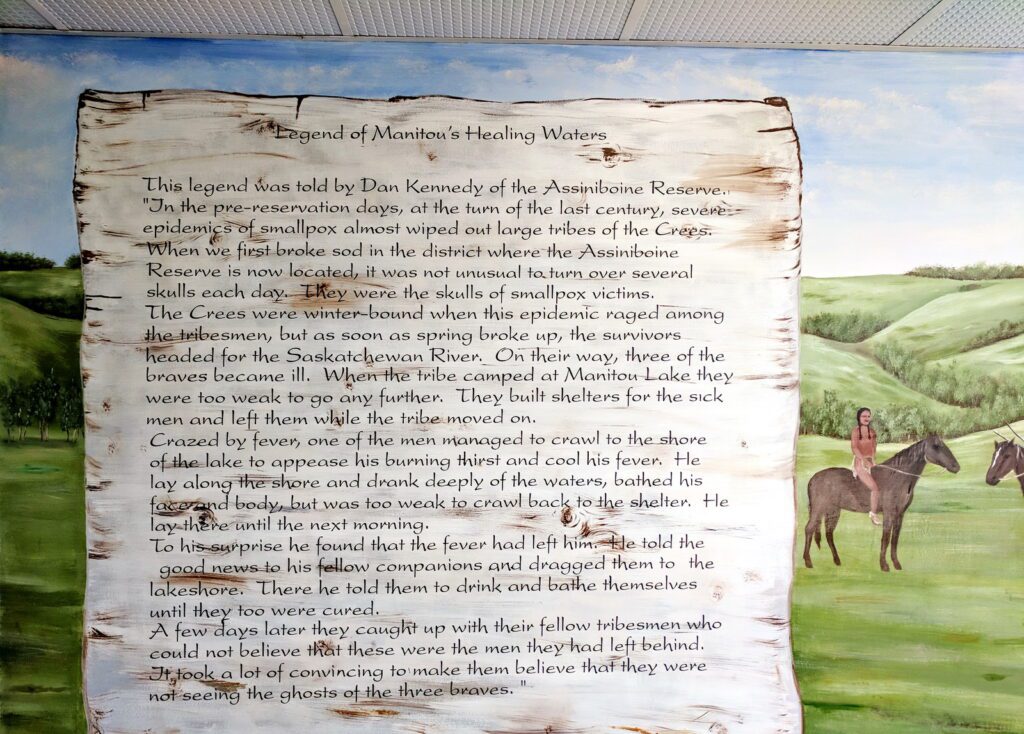 Legend of Manitou's Healing Waters
This legend was told by Dan Kennedy of the Assiniboine Reserve.
"In the pre-reservation days, at the turn of the last century, severe
epidemics of smallpox almost wiped out large tribes of the Crees.
When we first broke sod in the district where the Assiniboine
Reserve is now located, it was not unusual to turn over several
skulls each day. They were the skulls of smallpox victims.
The Crees were winter-bound when this epidemic raged among
the tribesmen, but as soon as spring broke up, the survivors
headed for the Saskatchewan River. On their way, three of the
braves became ill. When the tribe camped at Manitou Lake they
were too weak to go any further. They built shelters for the sick
men and left them while the tribe moved on.
Crazed by fever, one of the men managed to crawl to the shore
of the lake to appease his burning thirst and cool his fever. He
lay along the shore and drank deeply of the waters, bathed his
face and body, but was too weak to crawl back to the shelter. He
lay there until the next morning.
To his surprise he found that the fever had left him. He told the
good news to his fellow companions and dragged them to the
lakeshore. There he told them to drink and bathe themselves
until they too were cured.
A few days later they caught up with their fellow tribesmen who
could not believe that these were the men they had left behind.
It took a lot of convincing to make them believe that they were
not seeing the ghosts of the three braves. "